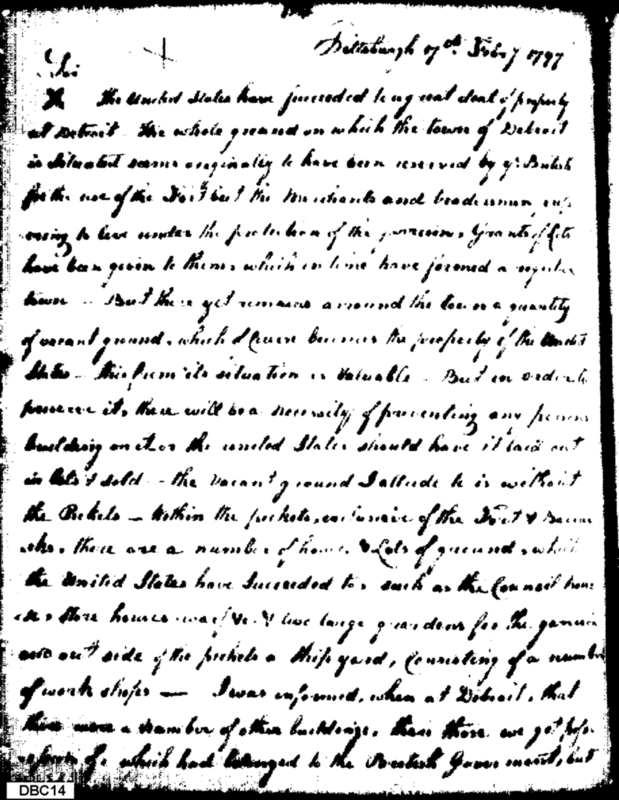 Pittsburgh 17th Feby 1797
Sir
The United States have succeeded to a great deal of property
at Detroit - The whole ground on which the town of Detroit
is situated seems originally to have been reserved by ye British
for the use of the Fort but the Merchants and tradesmen,
to live under the protection of the garrison, Grants of Lots
have been given to them, which in time have formed a regular
town - But there yet remains around the town a quantity
of vacant ground, which of course becomes the property of the United
States - this from its situation is valuable - But in order to
preserve it, there will be a necessity of preventing any persons
building on it or the united States should have it laid out
in lots & sold - the vacant ground I allude to is without
the Pickets - Within the pickets, exclusive of the Fort & Barra
cks, there are a number of houses & Lots of ground, which
the United States have succeeded to, such as the Council hou
se, store houses & two large gardens for the garrison
and out side of the pickets a Ship yard, Consisting of a number
of work shops - I was informed, when at Detroit, that
there were a number of other buildings, than those we got poss-
of, which had belonged to the British Government, but
DBC14